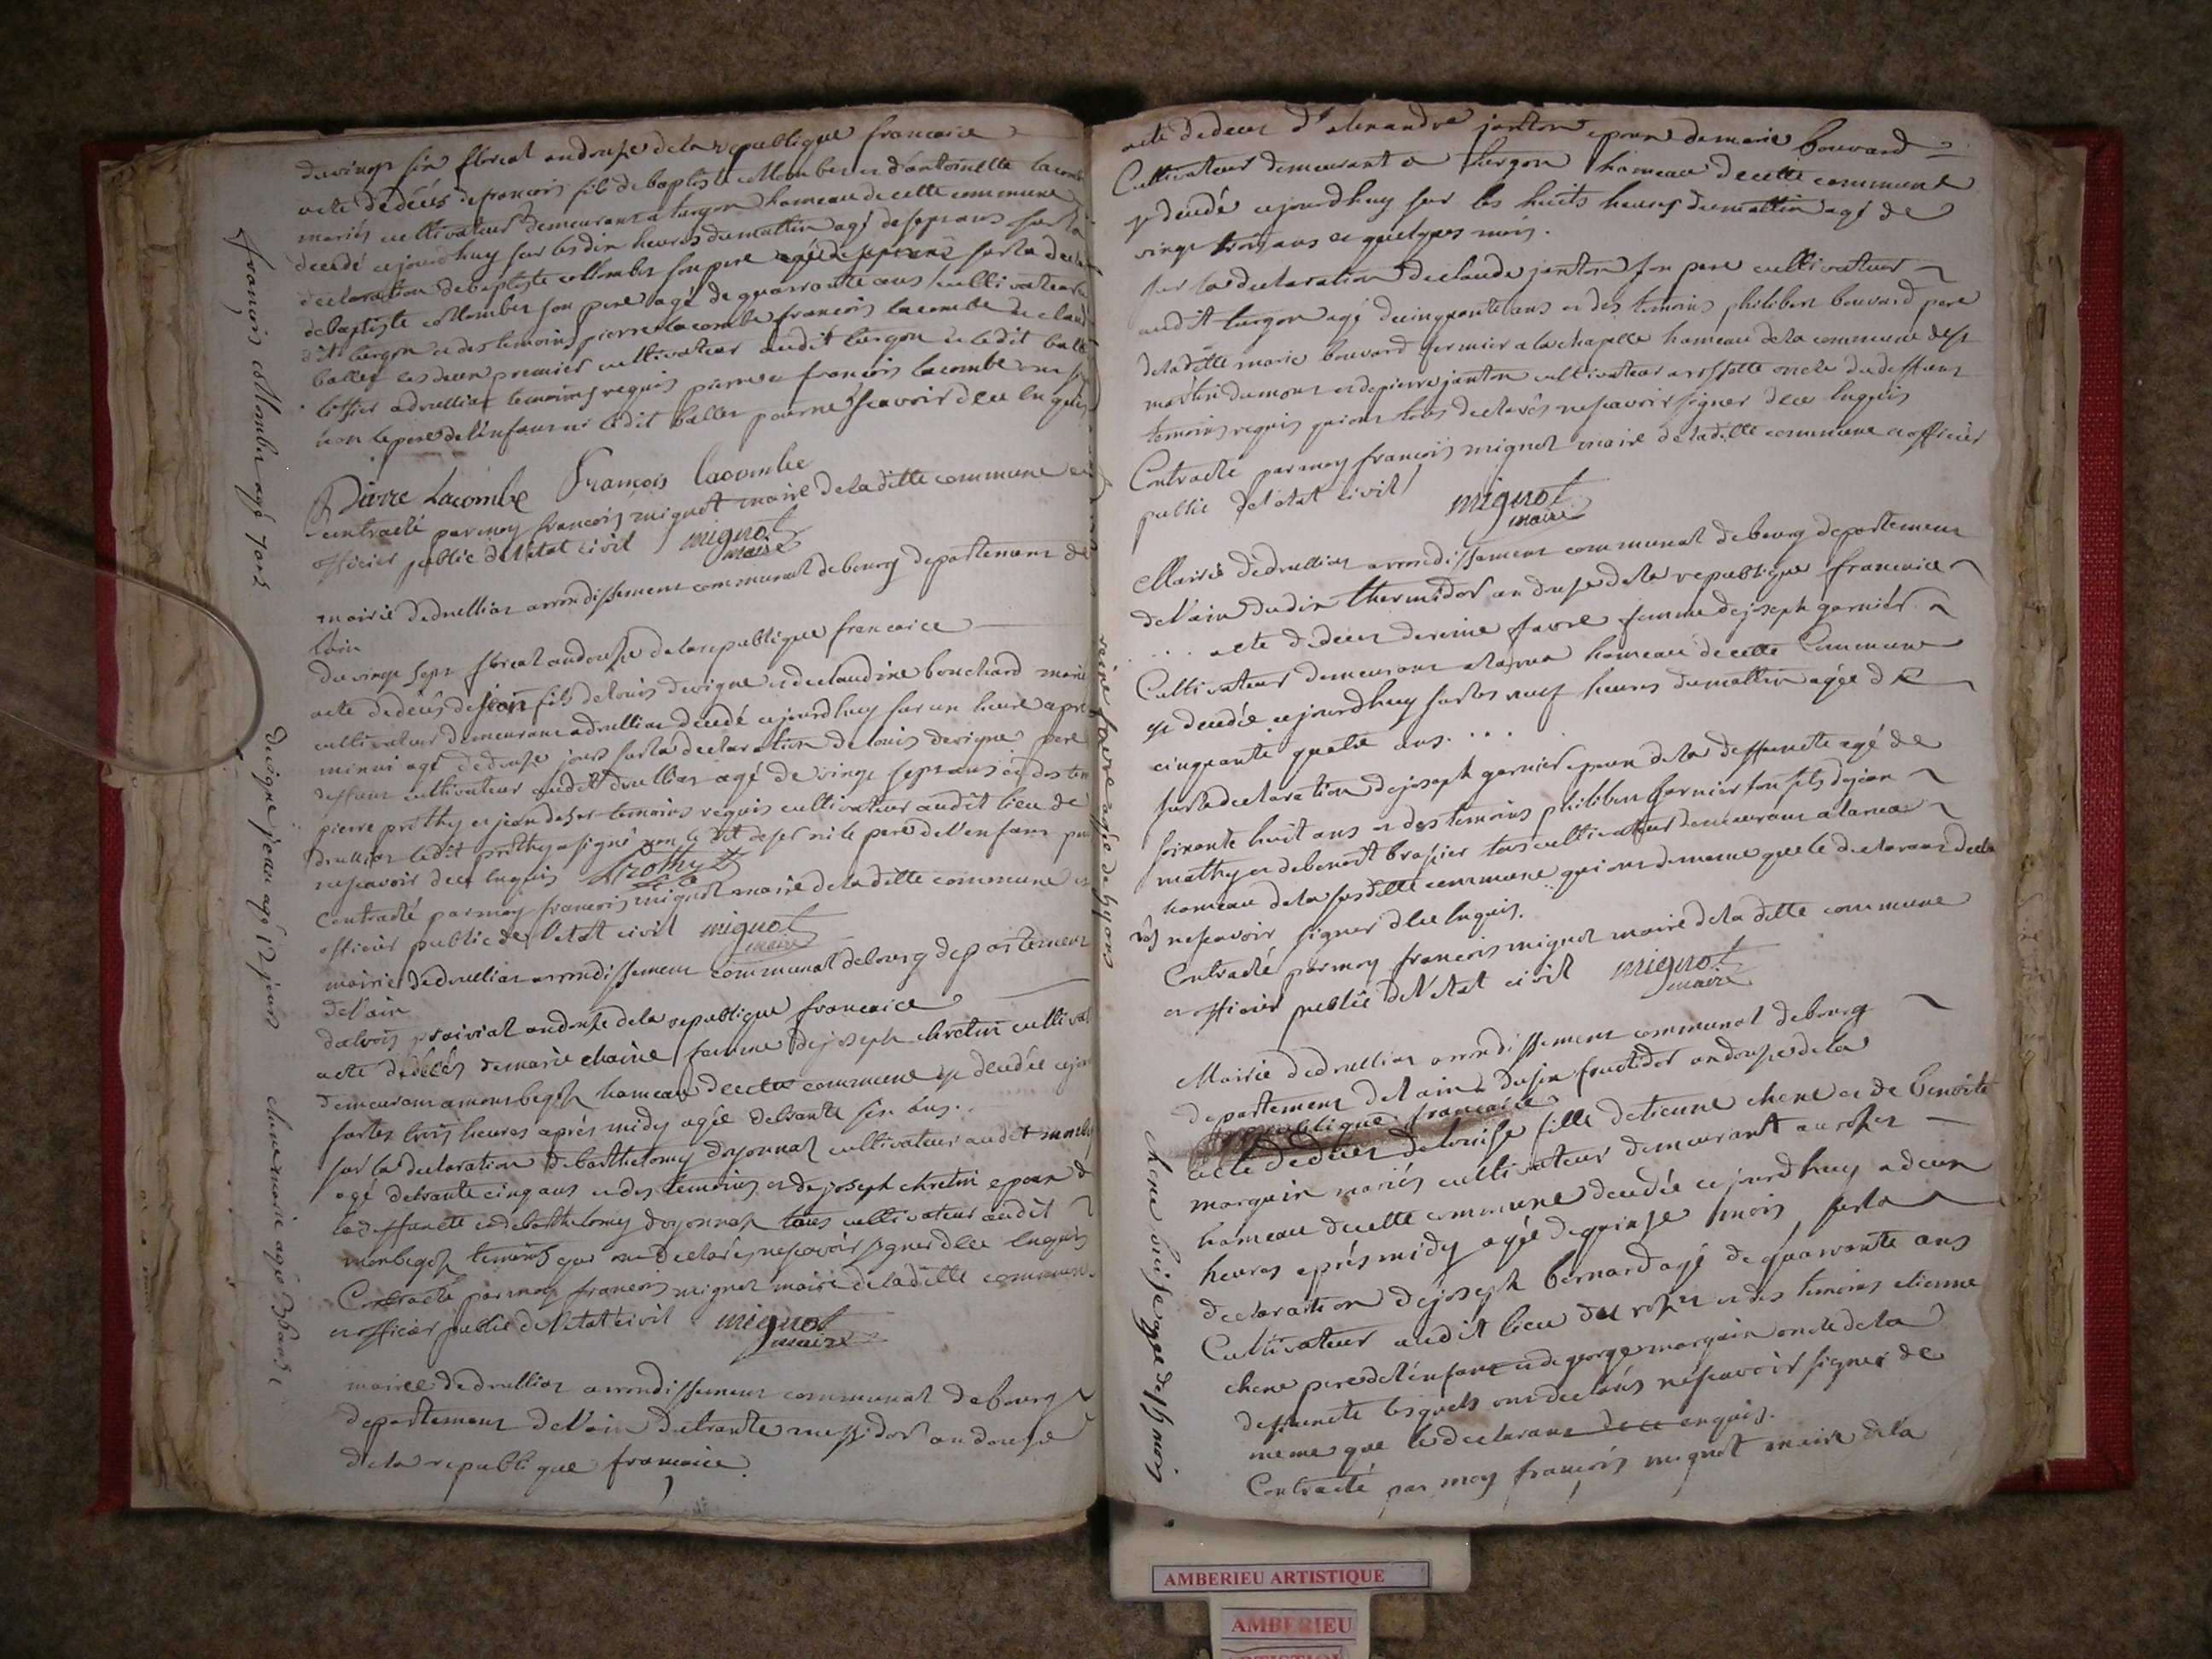 du vingt six floreal an douze de la republique francaice
acte de décés de francois fils de baptiste collomber et d'antoinette lacombe
mariés cultivateur demeurant a turgon hameau de cette commune
decedé cejourdhuy sur les dix heures du mattin agé de sept ans sur la
declaration de baptiste collomber son pere agé de sept ans sur la decla
de baptiste collomber son pere agé de quarrante ans cultivateur
dit turgon et des temoins pierre lacombe francois lacombe
ballet les deux premier cultivateur audit turgon et ledit balle
a drullias temoins requis pierre et francois lacombe ont si
non le pere de l'enfant ni ledit ballet pour ne scavoir de ce enquis
Pierre Lacombe Francois lacombe
contracté par moy francois mignot maire de la ditte commune et
officier public de l'etat civil mignot
maire
mairie de drullias arrondissement communal de bourg departement de
lain
du vingt sept floreal an douze de la republique francaice
acte de décés de jean fils de louis devigne et de claudine bouchard mariés
cultivateur demeurant a drullias decedé cejourdhuy sur un heure apre
minui agé de douze jours sur la declaration de louis devigne pere
deffunt cultivateur audit drullias agé de vingt sept ans et des tem
pierre prothy et jean temoins requis cultivateur audit lieu de
drullias ledit prothy a signé non le dit ni le pere de l'enfant pour
ne scavoir de ce enquis Prothy
contracté par moy francois mignot maire de la ditte commune et
officier public de l'etat civil mignot
maire
mairie de drullias arrondissement communal de bourg departement
de l'ain
du trois prairial an douze de la republique francaice
acte de décés de marie chaine femme de joseph chretin cultivat
demeurant a hameau de cette commune decedée cejour
sur les trois heures après midy agée de trante six ans.
sur la declaration de barthelomy doyonnax cultivateur audit
agé de trante cinq ans et des temoins et de joseph chretin epoux de
la deffuncte et de barthelomy doyonnax tous cultivateur audit
temoins qui ont declarés ne scavoir signer de ce enquis
Contracté par moy francois mignot maire de la ditte commune
et officier public de l'etat civil mignot
maire
mairie de drullias arrondissement communal de bourg
departement de l'ain du trante messidor an douze
de la republique francaice
francois collomber agé 7 ans
devigne jean agé 12 jours
chene marie agée 36 ans
acte de deces d'alexandre janton epoux de marie bouvard
Cultivateur demeurant a turgon hameau de cette commune
y decedé cejourdhuy sur les huits heures du mattin agé de
vingt trois ans et quelques mois.
sur la declaration de claude janton son pere cultivateur
audit turgon agé de cinquante ans et des temoins philibert bouvard pere
de la ditte marie bouvard fermier a la chapelle hameau de la commune de st
martin du mont et de pierre janton cultivateur a oncle du deffunt
temoins requis qui ont tous declarés ne scavoir signer de ce enquis
Contracte par moy francois mignot maire de la ditte commune et officier
public de l'etat civil mignot
maire
Mairie de drullias arrondissement communal de bourg departement
de l'ain du dix thermidor an douze de la republique francaice
acte de deces de reine favre femme de joseph garnier
Cultivateur demeurant a hameau de cette Commune
y decedée cejourdhuy sur les neuf heures du mattin agée de
cinquante quatre ans.
sur la declaration de joseph garnier epoux de la deffuncte agé de
soixante huit ans et des temoins philibert garnier son fils de jean
mathy et de benoit brasier tous cultivateur demeurant
hameau de la susditte commune qui ont de meme que le declarant decla
rés ne scavoir signer de ce enquis.
Contracté par moy francois mignot maire de la ditte commune
et officier public de l'etat civil mignot
maire
Mairie de drullias arrondissement communal de bourg
departement de l'ain du six fructidor an douze de la
republique francaice
acte de deces de louise fille detienne chene et de benoite
marguin mariés cultivateur demeurant au
hameau de cette commune decedée cejourdhuy a deux
heures après midy agée de quinze mois sur la
declaration de joseph bernard agé de quarrante ans
Cultivateur audit lieu du et des temoins etienne
chene pere de l'enfant et de george marguin oncle de la
deffuncte lesquels ont declarés ne scavoir signer de
meme que le declarant de ce enquis.
Contracté par moy françois mignot maire de la
reine favre agée de 54 ans
chene louise agge de 15 mois
AMBERIEU ARTISTIQUE
AMBERIEU